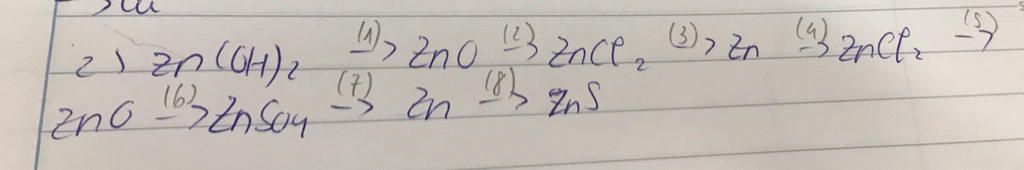 2) Zn(OH)₂ (1)→ ZnO (2)→ ZnCl₂ (3)→ Zn (4)→ ZnCl₂ (5)→
ZnO (6)→ ZnSO4 (7)→ Zn (8)→ ZnS